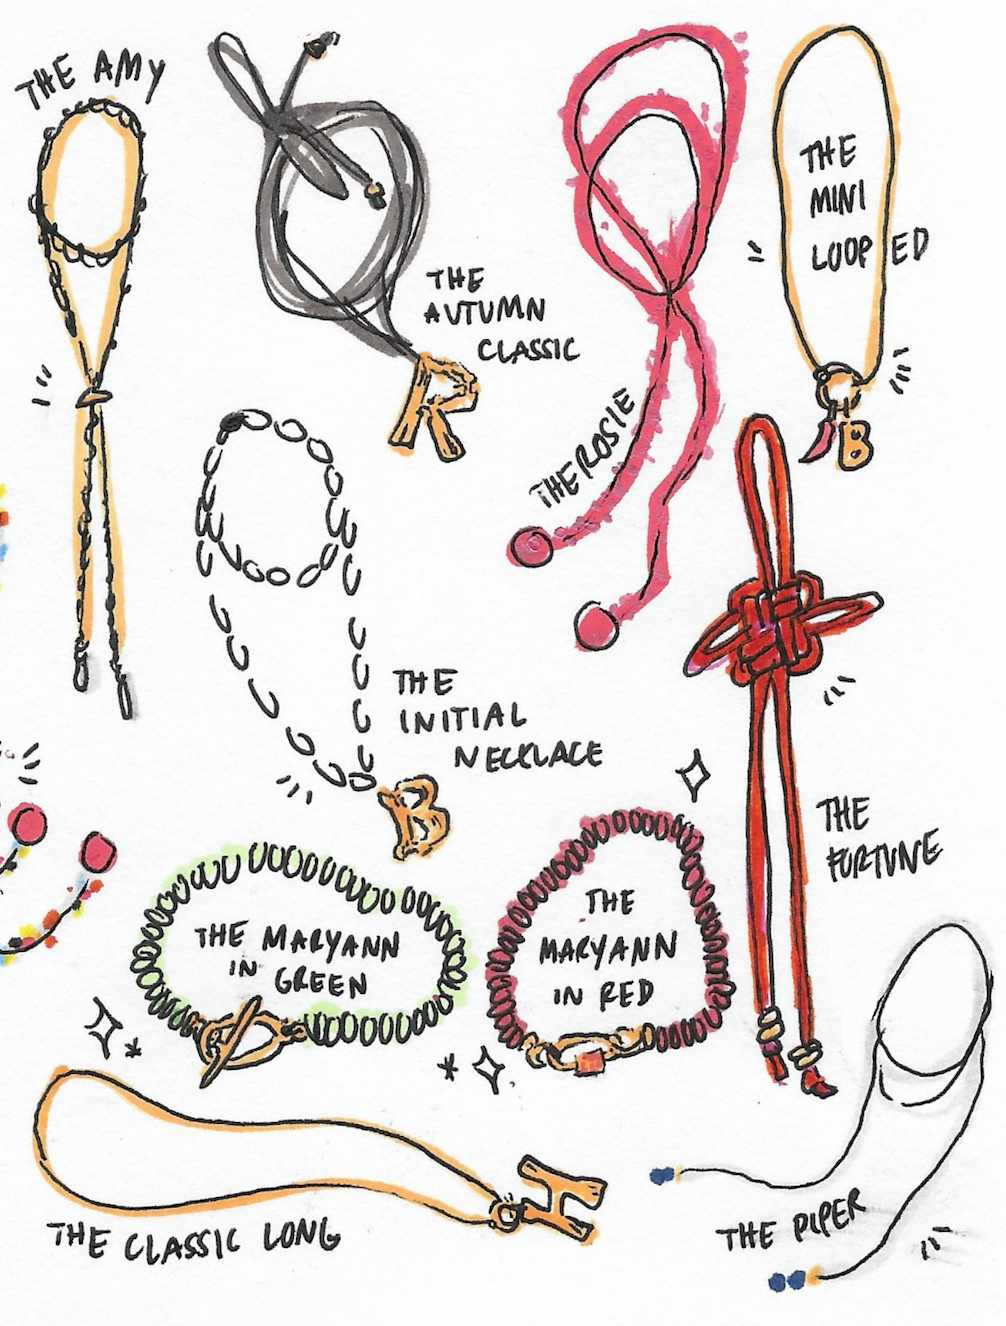 THE AMY
THE
AUTUMN
CLASSIC
R
THE ROSIE
THE
MINI
LOOPED
B
THE
INITIAL
NECKLACE
B
THE
FORTUNE
THE MARYANN
IN
GREEN
THE
MARYANN
IN RED
THE CLASSIC LONG
H
THE PIPER